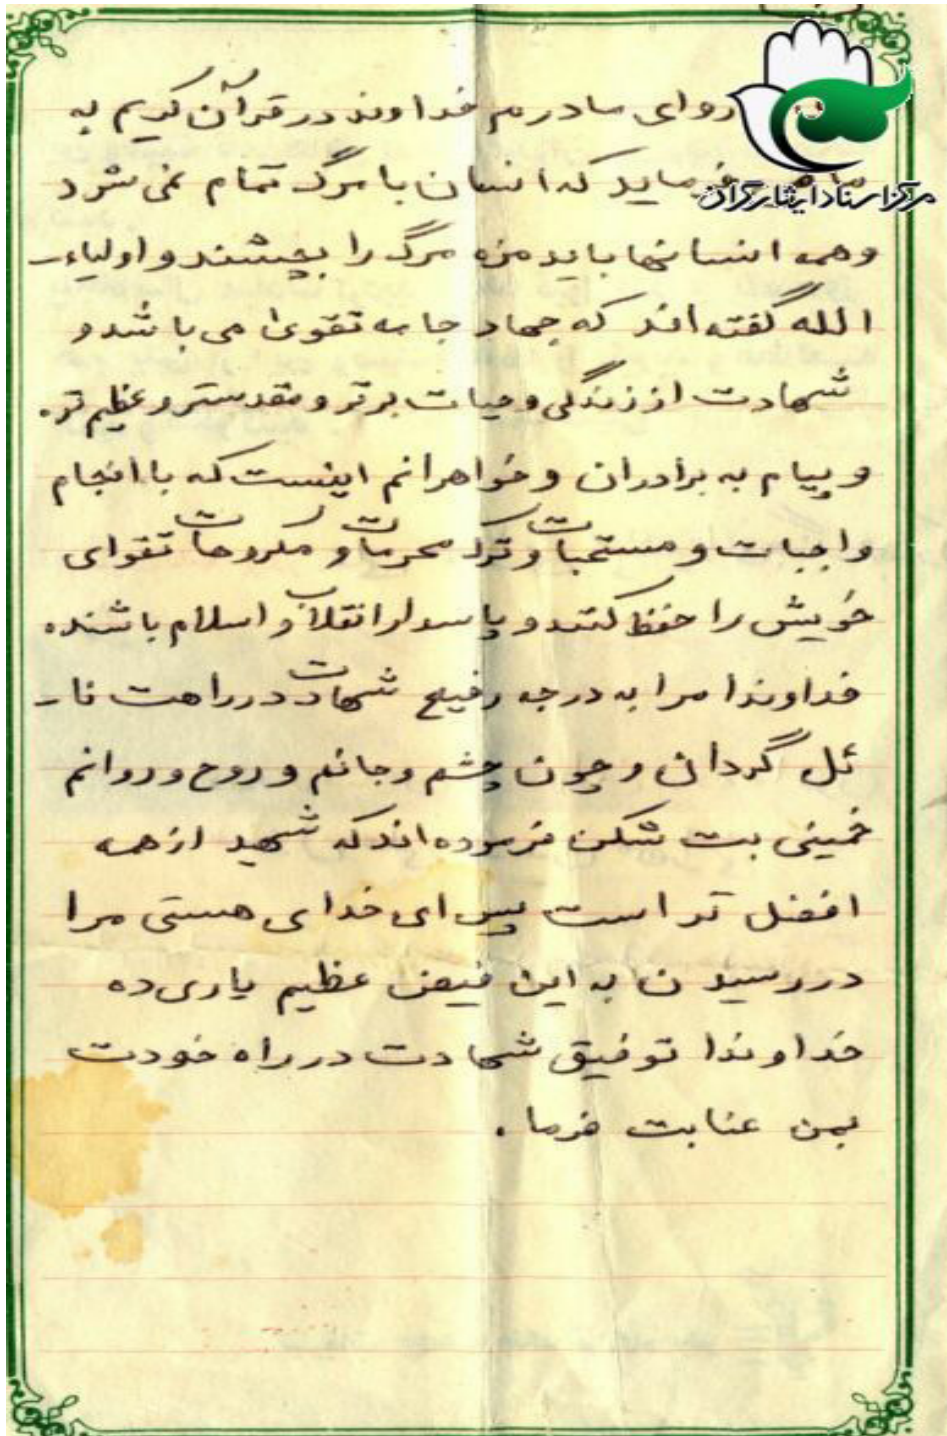 مرکز اسناد ایثارگران
روای مادرم خداوند در قرآن کریم به
ما می فرماید که انسان با مرگ تمام نمی شود
و همه انسانها باید مزه مرگ را بچشند و اولیاء
الله گفته اند که جهاد جامه تقوی می باشد و
شهادت از زندگی و حیات برتر و مقدستر و عظیم تر.
و پیام به برادران و خواهرانم اینست که با انجام
واجبات و مستحبات و ترک محرمات و مکروهات تقوای
خویش را حفظ کنند و پاسدار انقلاب و اسلام باشند.
خداوندا مرا به درجه رفیع شهادت در راهت نا-
ئل گردان و چون چشم و جانم و روح و روانم
خمینی بت شکن فرموده اند که شهید از همه
افضل تر است پس ای خدای هستی مرا
در رسیدن به این فیض عظیم یاری ده
خداوندا توفیق شهادت در راه خودت
بمن عنایت فرما .